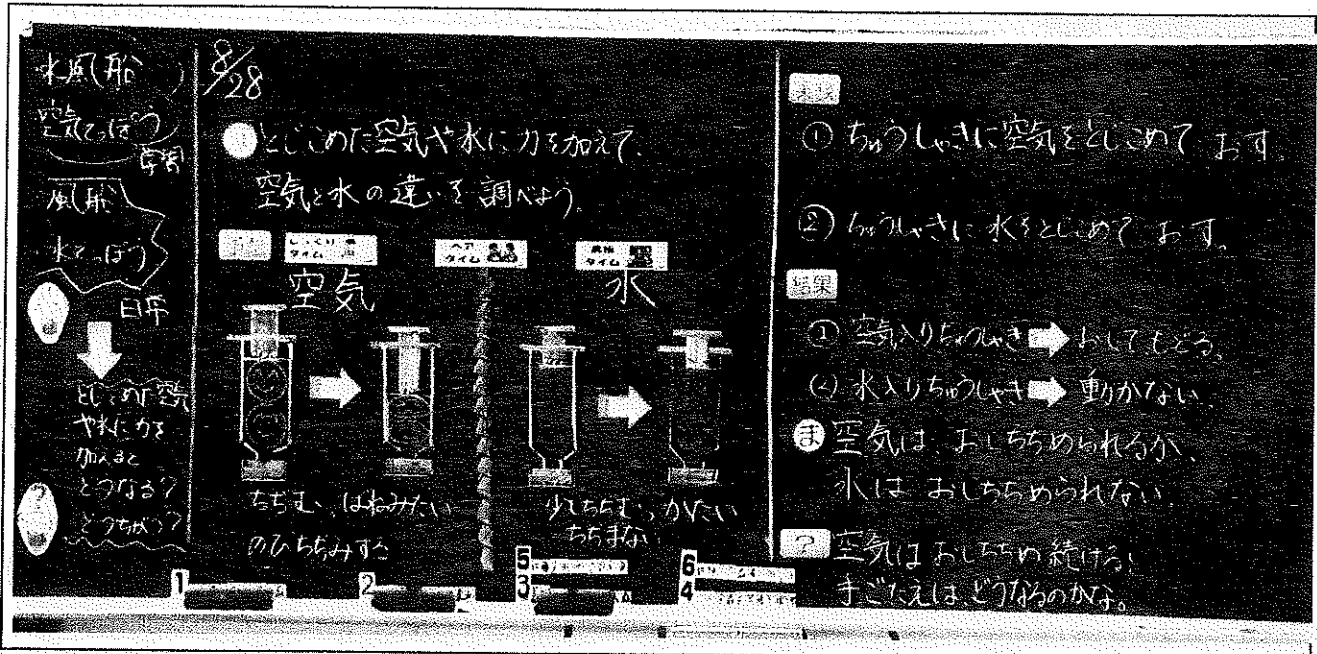 水風船
空気てっぽう
学習
風船
水てっぽう
日常
とじこめた空気
や水に力を
加えると
どうなる?
どうちがう?
8/28
とじこめた空気や水に力を加えて、
空気と水の違いを調べよう。
じっくり
タイム
ペア
タイム
タイム
空気
水
ちぢむ、はねみたい
のびちぢみする
少しちぢむ、かたい
ちぢまない
1
2
5
3
6
4
実験
① ちゅうしゃきに空気をとじこめて おす
② ちゅうしゃきに水をとじこめて おす。
結果
① 空気入りちゅうしゃき おして、もどる。
② 水入りちゅうしゃき 動かない。
ま 空気は、おしちぢめられるが、
水は おしちぢめられない
? 空気はおしちぢめ続けると
手ごたえはどうなるのかな。